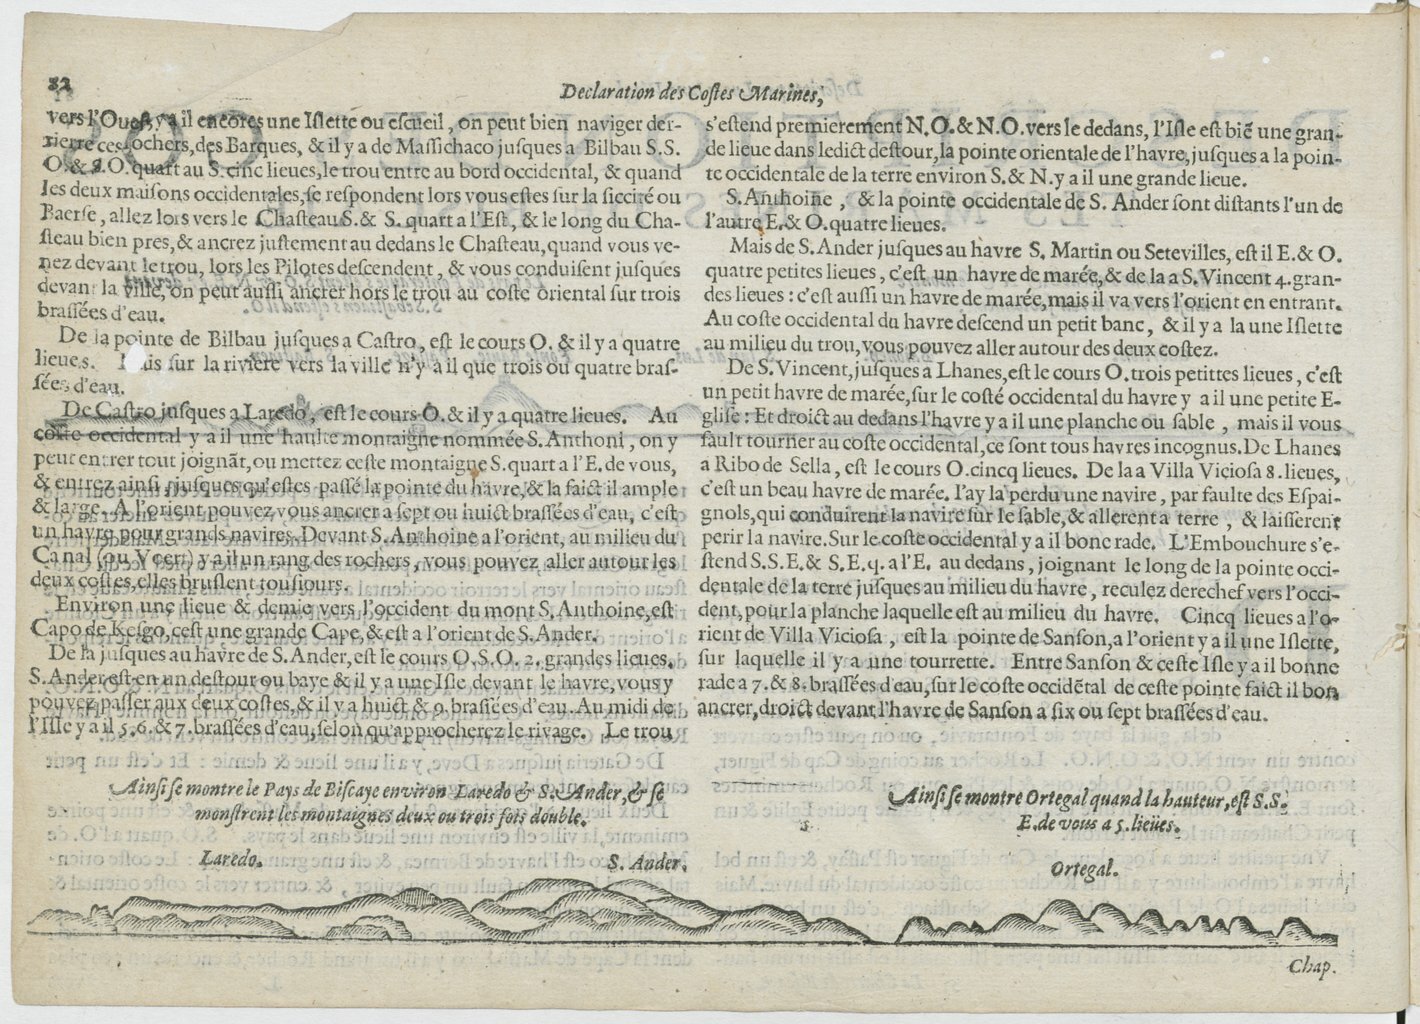 82
Declaration des Costes Marines,
vers l'Ouest, y a il encores une Islette ou escueil, on peut bien naviger der-
riere ces rochers, des Barques, & il y a de Massichaco jusques a Bilbau S.S.
O. & S.O. quart au S. cinc lieues, le trou entre au bord occidental, & quand
les deux maisons occidentales, se respondent lors vous estes sur la siccité ou
Baerse, allez lors vers le Chasteau S. & S. quart a l'Est, & le long du Cha-
steau bien pres, & ancrez justement au dedans le Chasteau, quand vous ve-
nez devant le trou, lors les Pilotes descendent, & vous conduisent jusques
devant la ville, on peut aussi ancrer hors le trou au coste oriental sur trois
brassées d'eau.
De la pointe de Bilbau jusques a Castro, est le cours O. & il y a quatre
lieues. Mais sur la riviere vers la ville n'y a il que trois ou quatre bras-
sées d'eau.
De Castro jusques a Laredo, est le cours O. & il y a quatre lieues. Au
coste occidental y a il une haulte montaigne nommée S. Anthoni, on y
peut entrer tout joignãt, ou mettez ceste montaigne S. quart a l'E. de vous,
& entrez ainsi jusques qu'estes passé la pointe du havre, & la faict il ample
& large. A l'orient pouvez vous ancrer a sept ou huict brassées d'eau, c'est
un havre pour grands navires. Devant S. Anthoine a l'orient, au milieu du
Canal (ou Vcert) y a il un rang des rochers, vous pouvez aller autour les
deux costes, elles bruslent tousjours.
Environ une lieue & demie vers l'occident du mont S. Anthoine, est
Capo de Kesgo, cest une grande Cape, & est a l'orient de S. Ander.
De la jusques au havre de S. Ander, est le cours O.S.O. 2. grandes lieues.
S. Ander est en un destour ou baye & il y a une Isle devant le havre, vous y
pouvez passer aux deux costes, & il y a huict & 9. brassées d'eau. Au midi de
l'Isle y a il 5. 6. & 7. brassées d'eau, selon qu'approcherez le rivage. Le trou
s'estend premierement N.O. & N.O. vers le dedans, l'Isle est biẽ une gran-
de lieue dans ledict destour, la pointe orientale de l'havre, jusques a la poin-
te occidentale de la terre environ S. & N. y a il une grande lieue.
S. Anthoine, & la pointe occidentale de S. Ander sont distants l'un de
l'autre E. & O. quatre lieues.
Mais de S. Ander jusques au havre S. Martin ou Setevilles, est il E. & O.
quatre petites lieues, c'est un havre de marée, & de la a S. Vincent 4. gran-
des lieues : c'est aussi un havre de marée, mais il va vers l'orient en entrant.
Au coste occidental du havre descend un petit banc, & il y a la une Islette
au milieu du trou, vous pouvez aller autour des deux costez.
De S. Vincent, jusques a Lhanes, est le cours O. trois petittes lieues, c'est
un petit havre de marée, sur le costé occidental du havre y a il une petite E-
glise : Et droict au dedans l'havre y a il une planche ou sable, mais il vous
fault tourner au coste occidental, ce sont tous havres incognus. De Lhanes
a Ribo de Sella, est le cours O. cincq lieues. De la a Villa Viciosa 8. lieues,
c'est un beau havre de marée. J'ay la perdu une navire, par faulte des Espai-
gnols, qui conduirent la navire sur le sable, & allerent a terre, & laisserent
perir la navire. Sur le coste occidental y a il bone rade. L'Embouchure s'e-
stend S.S.E. & S.E.q. a l'E. au dedans, joignant le long de la pointe occi-
dentale de la terre jusques au milieu du havre, reculez derechef vers l'occi-
dent, pour la planche laquelle est au milieu du havre. Cincq lieues a l'o-
rient de Villa Viciosa, est la pointe de Sanson, a l'orient y a il une Islette,
sur laquelle il y a une tourrette. Entre Sanson & ceste Isle y a il bonne
rade a 7. & 8. brassées d'eau, sur le coste occidẽtal de ceste pointe faict il bon
ancrer, droict devant l'havre de Sanson a six ou sept brassées d'eau.
Ainsi se montre le Pays de Biscaye environ Laredo & S. Ander, & se
monstrent les montaignes deux ou trois fois double.
Laredo.
S. Ander.
Ainsi se montre Ortegal quand la hauteur, est S.S.
E. de vous a 5. lieües.
Ortegal.
Chap.